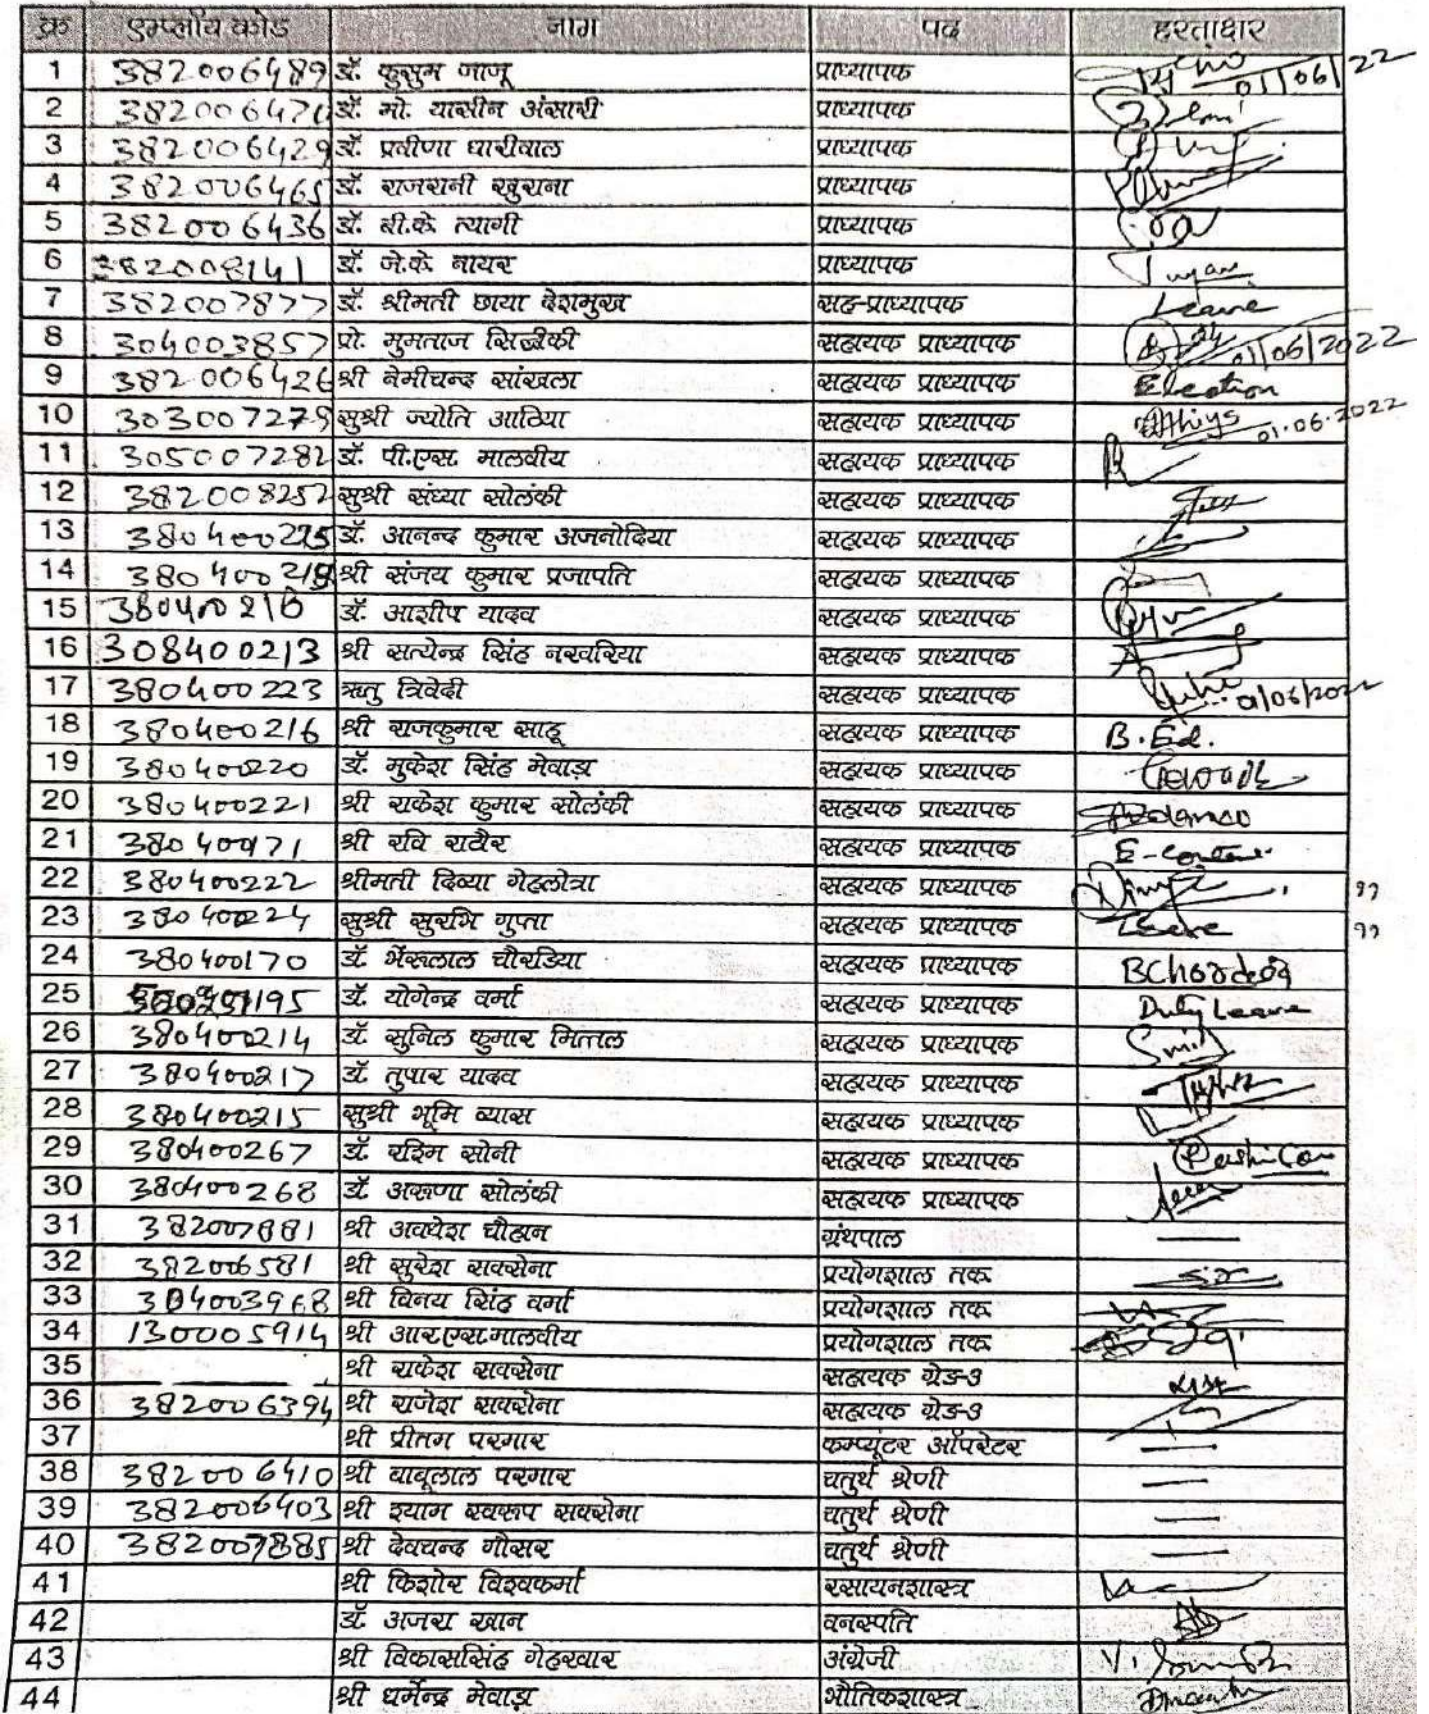 क्र एम्प्लॉय कोड नाम पद हस्ताक्षर
1 382006489 डॉ. कुसुम जाजू प्राध्यापक 01/06/22
2 डॉ. मो. यासीन अंसारी प्राध्यापक
3 382006429 डॉ. प्रवीणा धारीवाल प्राध्यापक
4 382006465 डॉ. राजरानी खुराना प्राध्यापक
5 382006436 डॉ. बी.के. त्यागी प्राध्यापक
6 382008141 डॉ. जे.के. नायर प्राध्यापक
7 382007877 डॉ. श्रीमती छाया देशमुख सह-प्राध्यापक Leave
8 304003857 प्रो. मुमताज सिद्दीकी सहायक प्राध्यापक 01/06/2022
9 382006426 श्री नेमीचन्द सांखला सहायक प्राध्यापक Election
10 303007279 सुश्री ज्योति आठिया सहायक प्राध्यापक 01.06.2022
11 305007282 डॉ. पी.एस. मालवीय सहायक प्राध्यापक
12 382008252 सुश्री संध्या सोलंकी सहायक प्राध्यापक
13 डॉ. आनन्द कुमार अजनोदिया सहायक प्राध्यापक
14 380400219 श्री संजय कुमार प्रजापति सहायक प्राध्यापक
15 डॉ. आशीष यादव सहायक प्राध्यापक
16 308400213 श्री सत्येन्द्र सिंह नरवरिया सहायक प्राध्यापक
17 380400223 ऋतु त्रिवेदी सहायक प्राध्यापक 01/06/2022
18 380400216 श्री राजकुमार साहू सहायक प्राध्यापक B.Ed.
19 380400220 डॉ. मुकेश सिंह मेवाड़ा सहायक प्राध्यापक
20 380400221 श्री राकेश कुमार सोलंकी सहायक प्राध्यापक
21 380400171 श्री रवि राठौर सहायक प्राध्यापक E-content
22 380400222 श्रीमती दिव्या गेहलोत्रा सहायक प्राध्यापक
23 380400224 सुश्री सुरभि गुप्ता सहायक प्राध्यापक Leave
24 380400170 डॉ. भेंरूलाल चौरडिया सहायक प्राध्यापक BChordia
25 डॉ. योगेन्द्र वर्मा सहायक प्राध्यापक Duty Leave
26 380400214 डॉ. सुनिल कुमार मित्तल सहायक प्राध्यापक
27 380400217 डॉ. तुषार यादव सहायक प्राध्यापक
28 380400215 सुश्री भूमि व्यास सहायक प्राध्यापक
29 380400267 डॉ. रश्मि सोनी सहायक प्राध्यापक
30 380400268 डॉ. अरूणा सोलंकी सहायक प्राध्यापक
31 382007881 श्री अवधेश चौहान ग्रंथपाल —
32 382006581 श्री सुरेश सक्सेना प्रयोगशाल तक.
33 304003968 श्री विनय सिंह वर्मा प्रयोगशाल तक.
34 130005914 श्री आर.एस.मालवीय प्रयोगशाल तक.
35 — — - श्री राकेश सक्सेना सहायक ग्रेड-3
36 382006394 श्री राजेश सक्सेना सहायक ग्रेड-3
37 श्री प्रीतम परमार कम्प्यूटर ऑपरेटर —
38 382006410 श्री बाबूलाल परमार चतुर्थ श्रेणी —
39 382006403 श्री श्याम स्वरूप सक्सेना चतुर्थ श्रेणी —
40 382007885 श्री देवचन्द गौसर चतुर्थ श्रेणी —
41 श्री किशोर विश्वकर्मा रसायनशास्त्र
42 डॉ. अजरा खान वनस्पति
43 श्री विकाससिंह गेहरवार अंग्रेजी
44 श्री धर्मेन्द्र मेवाड़ा भौतिकशास्त्र